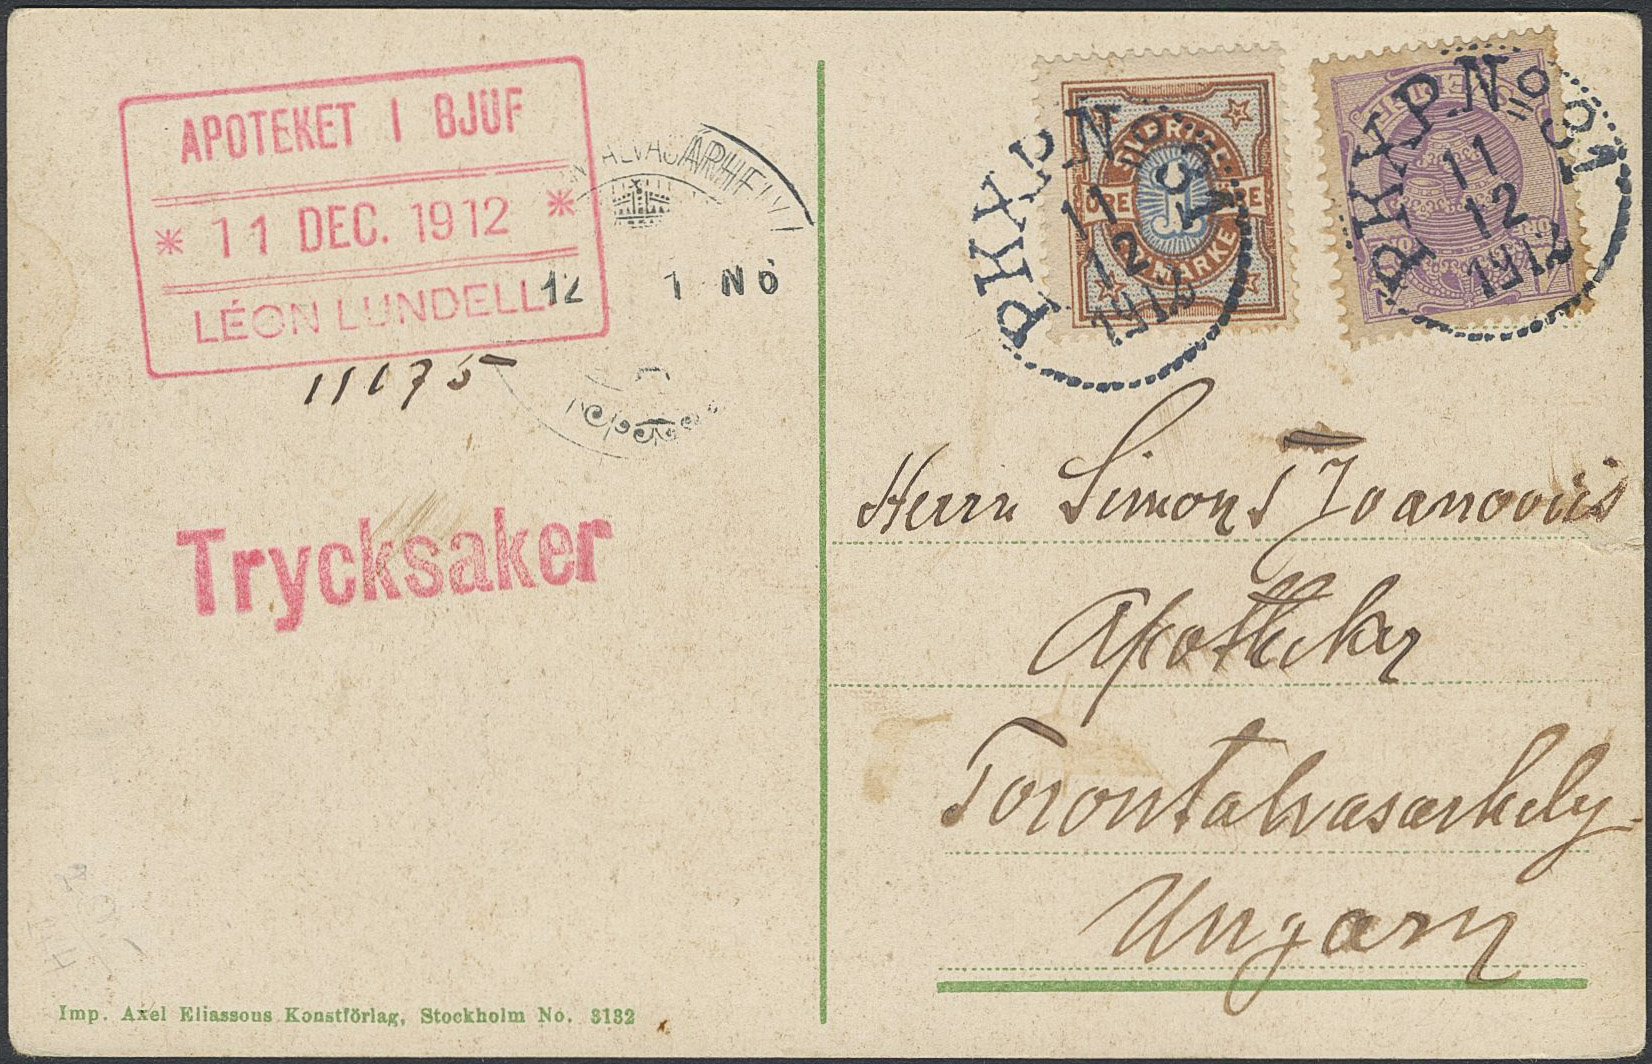 APOTEKET I BJUF
* 11 DEC. 1912 *
LÉON LUNDELL
12 1 N6
11175
Trycksaker
Imp. Axel Eliassons Konstförlag, Stockholm No. 3132
PKXP. No 81
11
12
1912
ÖRE
FRIMÄRKE
PKXP. No 81
11
12
1912
Herrn Simon Ivanovics
Apotheker
Torontalvasarhely
Ungarn